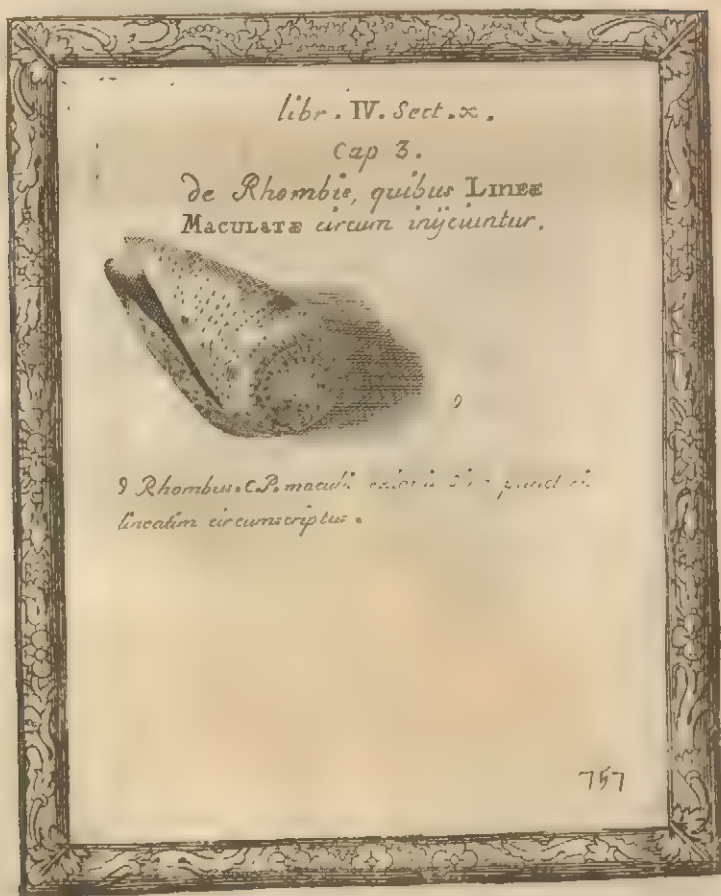 libr. IV. Sect. x.
Cap 3.
de Rhombis, quibus LINEÆ
MACULATÆ circum inijciuntur.
9
9 Rhombus. C.P. macul
lineatim circumscriptus.
757